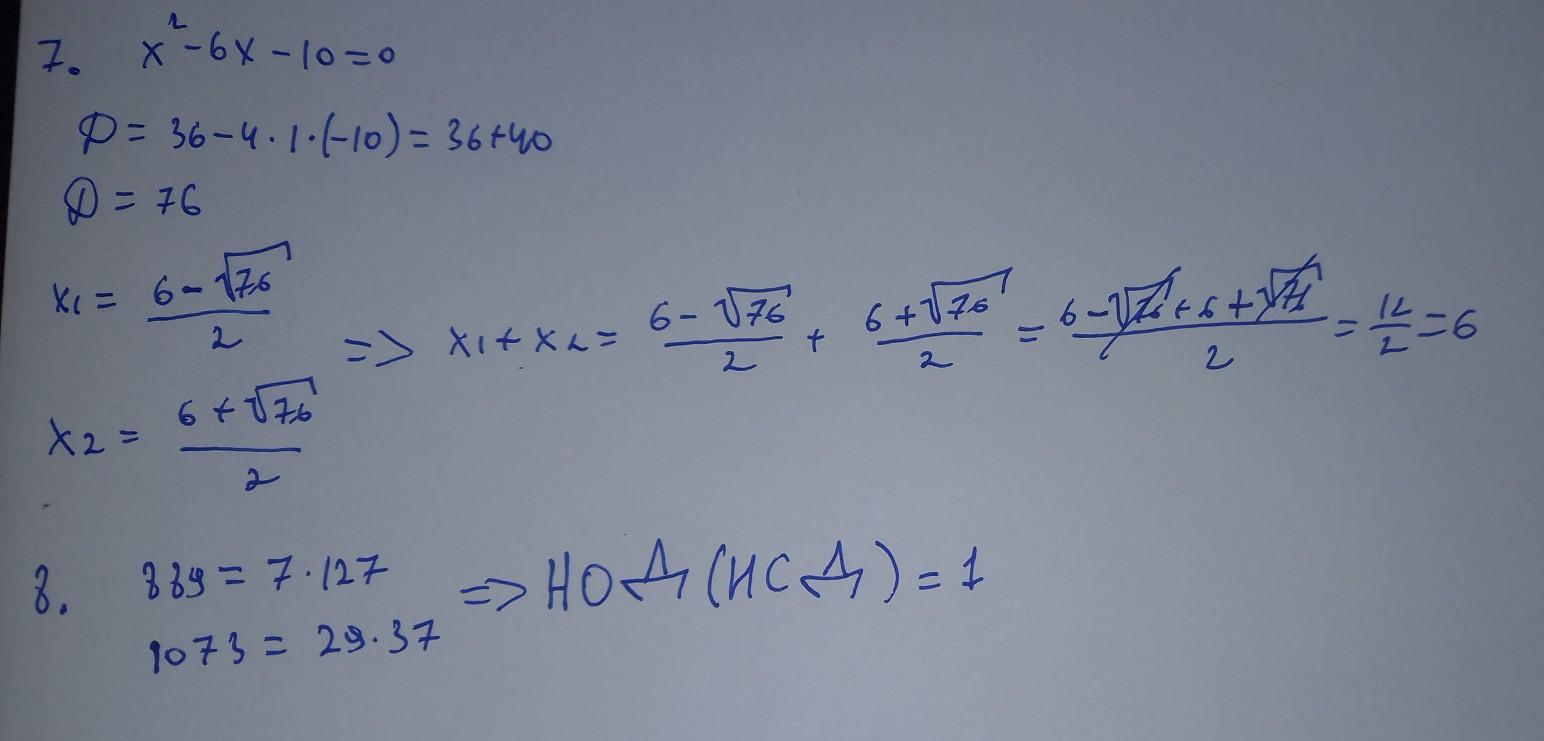 7. x²-6x-10=0
D = 36-4·1·(-10) = 36+40
D = 76
x1 = (6-√76)/2
=> x1+x2 = (6-√76)/2 + (6+√76)/2 = (6-√76+6+√76)/2 = 12/2 = 6
x2 = (6+√76)/2
8. 889 = 7·127
=> НОД (НСД) = 1
1073 = 29·37